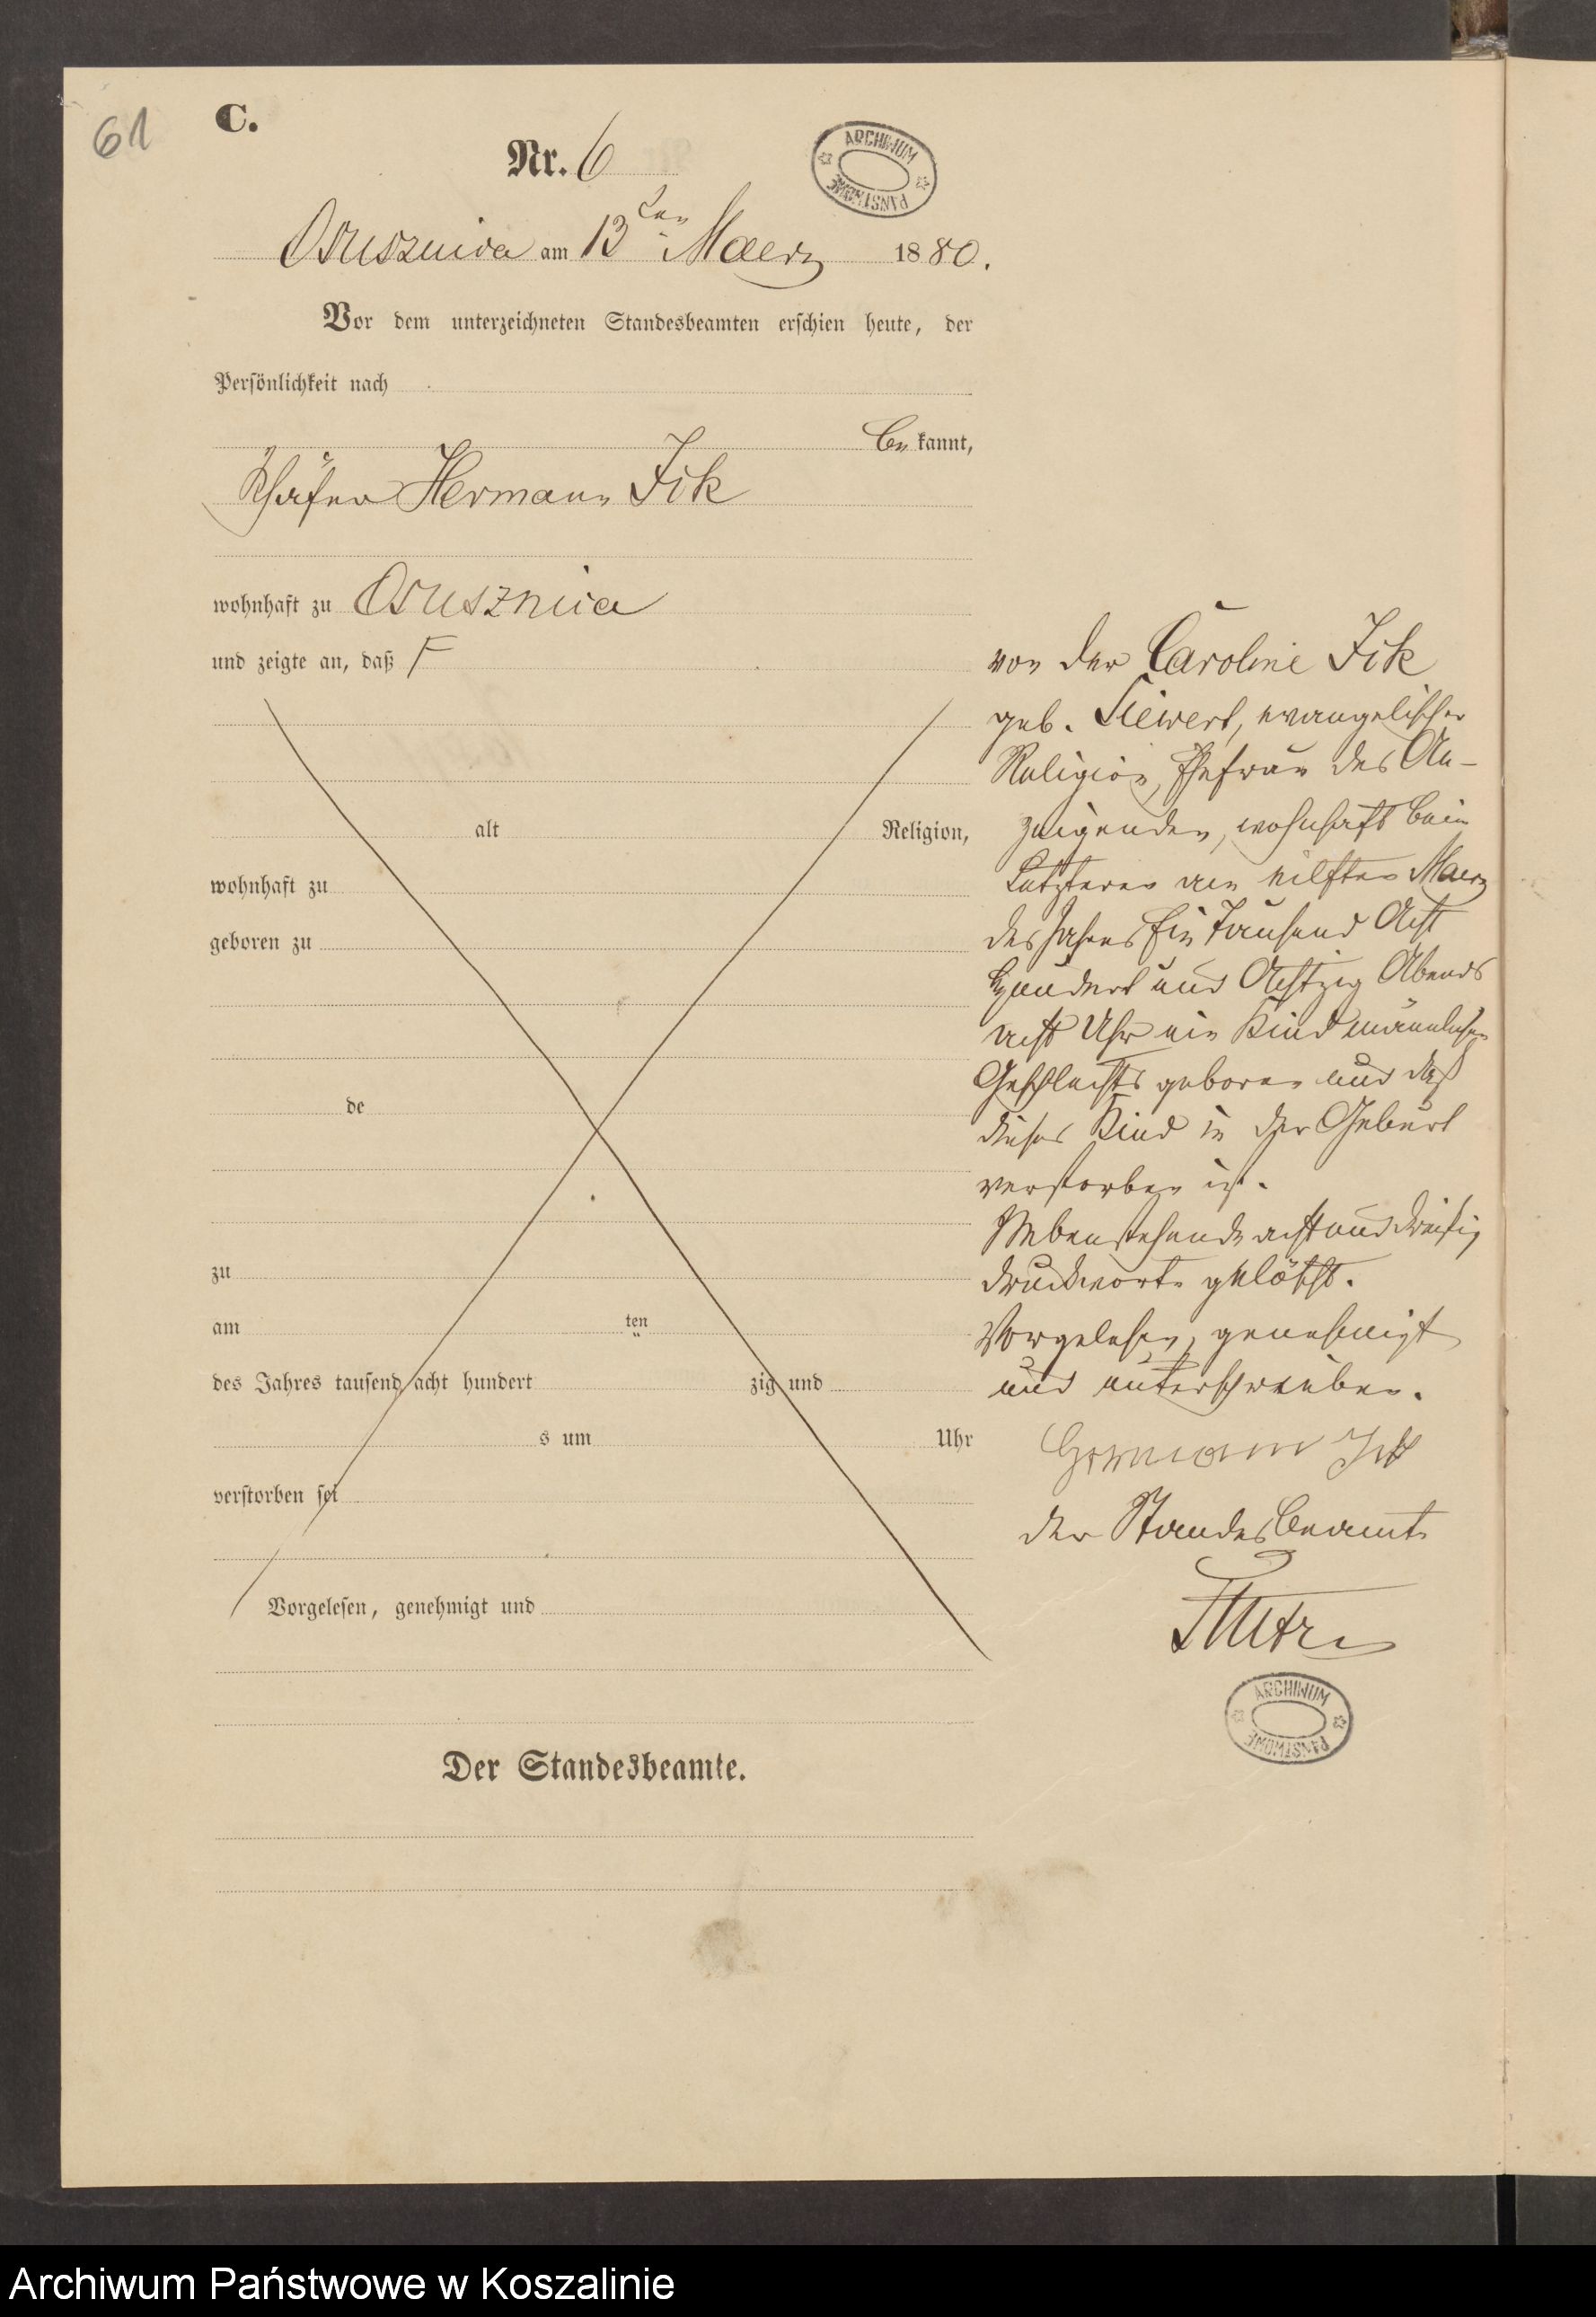 61
C.
Nr. 6
ARCHIWUM PAŃSTWOWE
Osusznica am 13ten Maerz 1880.
Vor dem unterzeichneten Standesbeamten erschien heute, der
Persönlichkeit nach
be kannt,
Schäfer Hermann Fik
wohnhaft zu Osusznica
und zeigte an, daß
alt Religion,
wohnhaft zu
geboren zu
de
zu
am ten
des Jahres tausend acht hundert zig und
s um Uhr
verstorben sei
Vorgelesen, genehmigt und
Der Standesbeamte.
von der Caroline Fik
geb. Siewert, evangelischer
Religion, Ehefrau des An-
zeigenden, wohnhaft beim
Letzteren am eilften Maerz
des Jahres Ein Tausend Acht
Hundert und Achtzig Abends
acht Uhr ein Kind männlichen
Geschlechts geboren und daß
dieses Kind in der Geburt
verstorben ist.
Nebenstehende acht und dreißig
Druckworte gelöscht.
Vorgelesen, genehmigt
und unterschrieben.
Hermann Fik
der Standesbeamte
ARCHIWUM PAŃSTWOWE
Archiwum Państwowe w Koszalinie